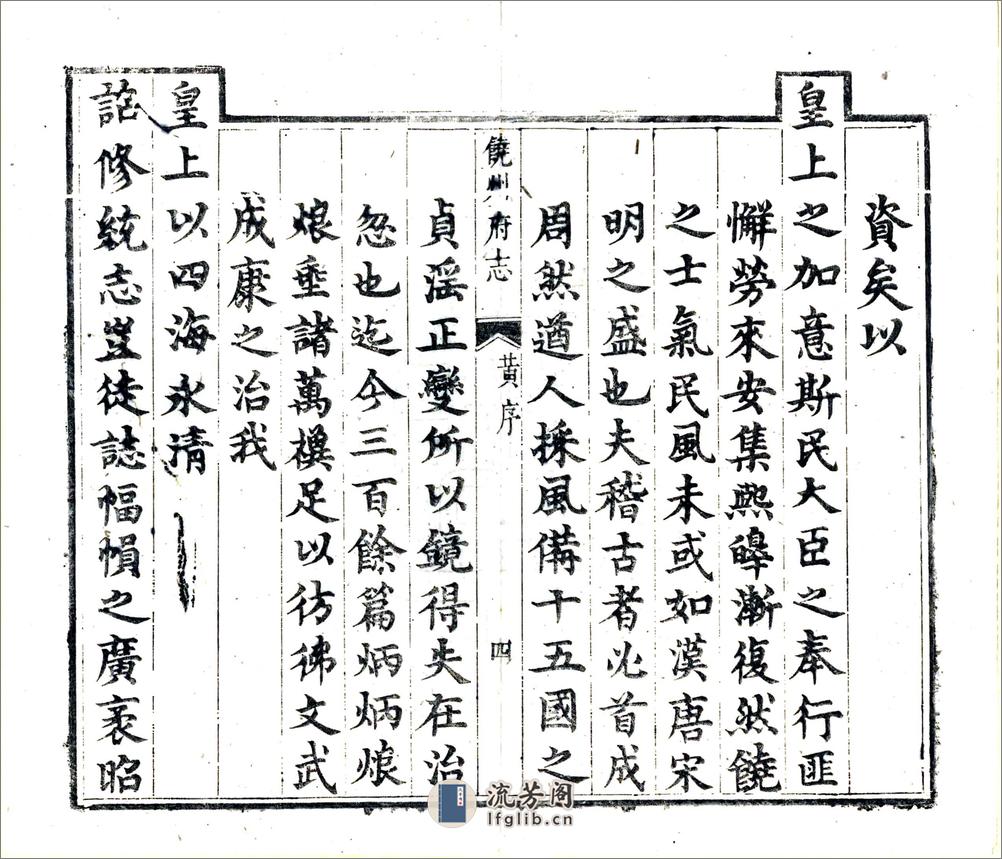 資矣以
皇上之加意斯民大臣之奉行匪
懈勞來安集熙皞漸復然饒
之士氣民風未或如漢唐宋
明之盛也夫稽古者必首成
周然遒人採風備十五國之
饒州府志
黃序
四
貞淫正變所以鏡得失在治
忽也迄今三百餘篇炳炳烺
烺垂諸萬禩足以彷彿文武
成康之治我
皇上以四海永清
詔修統志豈徒誌幅幀之廣袤昭
流芳阁
lfglib.cn